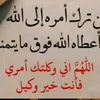 من ترك أمره إلى الله
أعطاه الله فوق ما يتمنى
اللهم اني وكلتك أمري
فأنت خير وكيل